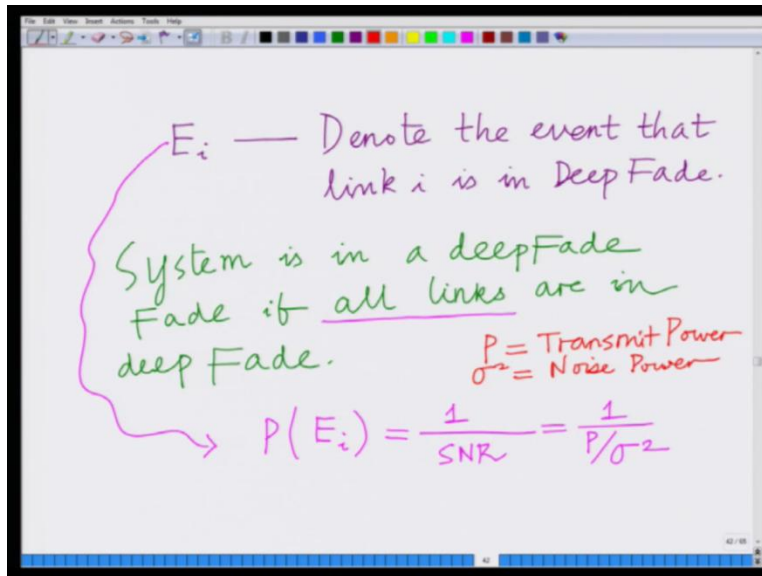 File Edit View Insert Actions Tools Help
E_i — Denote the event that
link i is in Deep Fade.
System is in a deepFade
Fade if all links are in
deep Fade.
P = Transmit Power
σ² = Noise Power
P(E_i) = 1/SNR = 1/(P/σ²)
42 / 65
42